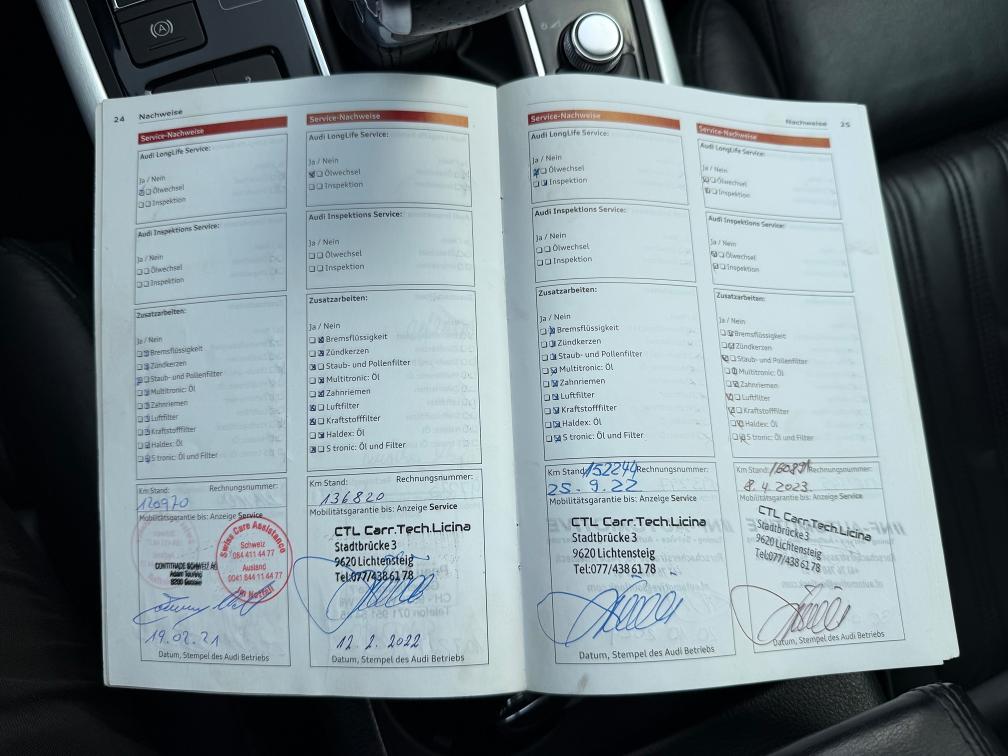 24 Nachweise
Service-Nachweise
Audi LongLife Service:
Ja / Nein
Ölwechsel
Inspektion
Audi Inspektions Service:
Ja / Nein
Ölwechsel
Inspektion
Zusatzarbeiten:
Ja / Nein
Bremsflüssigkeit
Zündkerzen
Staub- und Pollenfilter
Multitronic: Öl
Zahnriemen
Luftfilter
Kraftstofffilter
Haldex: Öl
S tronic: Öl und Filter
Km Stand: Rechnungsnummer:
120970
Mobilitätsgarantie bis: Anzeige Service
Swiss Care Assistance
Schweiz
084 411 44 77
Ausland
0041 844 11 44 77
Im Notfall
CONTITRADE SCHWEIZ AG
Adam Touring
19.02.21
Datum, Stempel des Audi Betriebs
Service-Nachweise
Audi LongLife Service:
Ja / Nein
Ölwechsel
Inspektion
Audi Inspektions Service:
Ja / Nein
Ölwechsel
Inspektion
Zusatzarbeiten:
Ja / Nein
Bremsflüssigkeit
Zündkerzen
Staub- und Pollenfilter
Multitronic: Öl
Zahnriemen
Luftfilter
Kraftstofffilter
Haldex: Öl
S tronic: Öl und Filter
Km Stand: Rechnungsnummer:
136820
Mobilitätsgarantie bis: Anzeige Service
CTL Carr.Tech.Licina
Stadtbrücke 3
9620 Lichtensteig
Tel:077/438 61 78
12.2.2022
Datum, Stempel des Audi Betriebs
Service-Nachweise
Audi LongLife Service:
Ja / Nein
Ölwechsel
Inspektion
Audi Inspektions Service:
Ja / Nein
Ölwechsel
Inspektion
Zusatzarbeiten:
Ja / Nein
Bremsflüssigkeit
Zündkerzen
Staub- und Pollenfilter
Multitronic: Öl
Zahnriemen
Luftfilter
Kraftstofffilter
Haldex: Öl
S tronic: Öl und Filter
Km Stand: 152244 Rechnungsnummer:
25.9.22
Mobilitätsgarantie bis: Anzeige Service
CTL Carr.Tech.Licina
Stadtbrücke 3
9620 Lichtensteig
Tel:077/438 61 78
Datum, Stempel des Audi Betriebs
Nachweise 25
Service-Nachweise
Audi LongLife Service:
Ja / Nein
Ölwechsel
Inspektion
Audi Inspektions Service:
Ja / Nein
Ölwechsel
Inspektion
Zusatzarbeiten:
Ja / Nein
Bremsflüssigkeit
Zündkerzen
Staub- und Pollenfilter
Multitronic: Öl
Zahnriemen
Luftfilter
Kraftstofffilter
Haldex: Öl
S tronic: Öl und Filter
Km Stand: Rechnungsnummer:
8.4.2023
Mobilitätsgarantie bis: Anzeige Service
CTL Carr.Tech.Licina
Stadtbrücke 3
9620 Lichtensteig
Tel:077/438 61 78
Datum, Stempel des Audi Betriebs